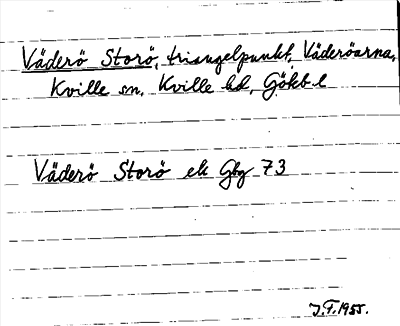 Väderö Storö, triangelpunkt, Väderöarna,
Kville sn, Kville hd, Gökb. l
Väderö Storö ek Gbg 73
J.F. 1955.